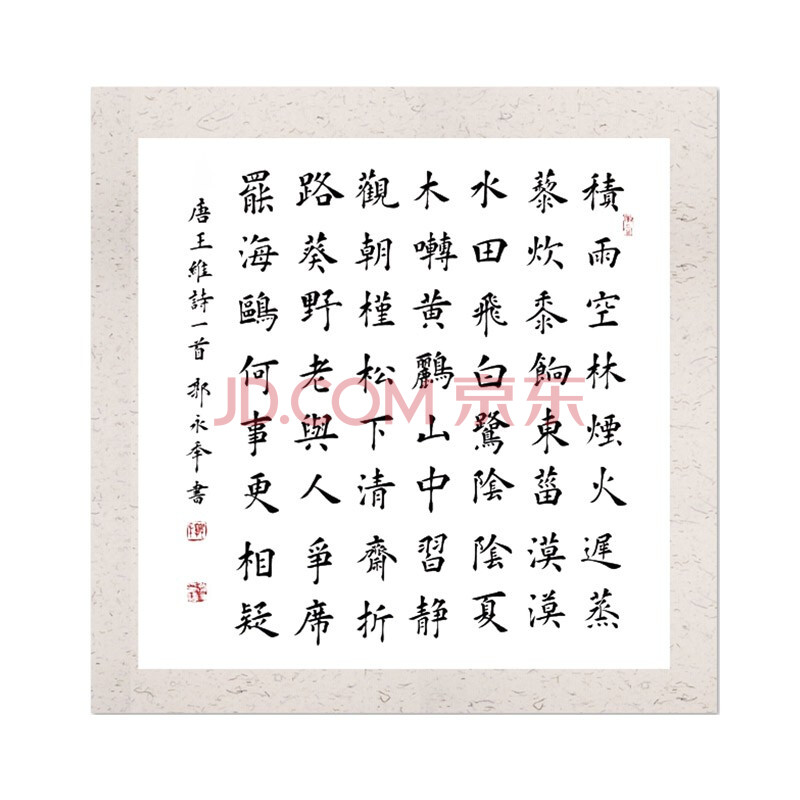 積雨空林煙火遲蒸
藜炊黍餉東菑漠漠
水田飛白鷺陰陰夏
木囀黄鸝山中習静
觀朝槿松下清齋折
路葵野老與人爭席
罷海鷗何事更相疑
唐王維詩一首 郭永奉書
JD.COM 京东